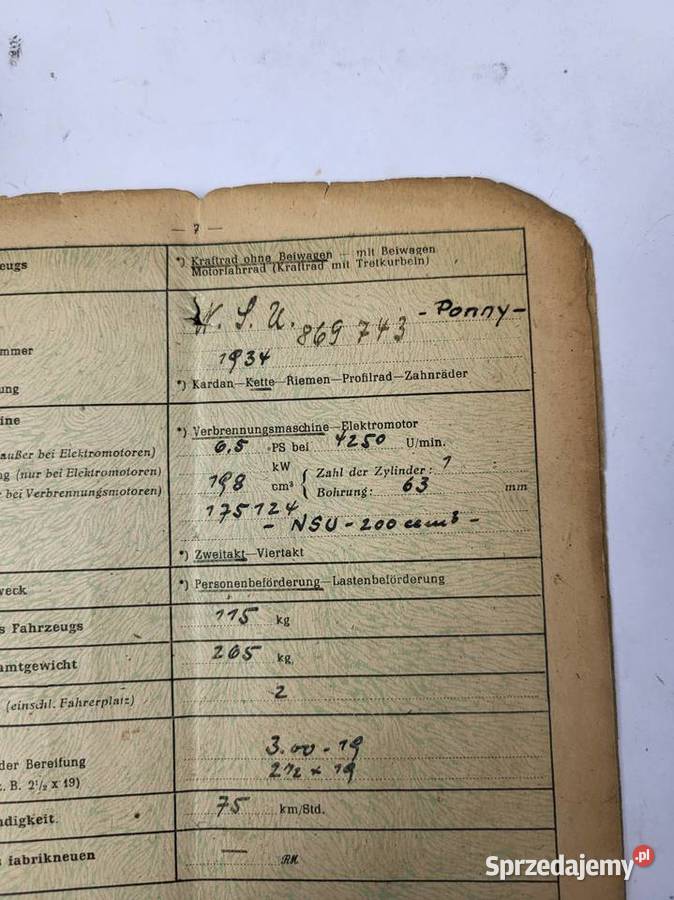 — 7 —
eugs
*) Kraftrad ohne Beiwagen — mit Beiwagen
Motorfahrrad (Kraftrad mit Tretkurbeln)
N. S. U. 869 743 - Ponny -
ummer
1934
ung
*) Kardan—Kette—Riemen—Profilrad—Zahnräder
ine
*) Verbrennungsmaschine—Elektromotor
außer bei Elektromotoren)
6,5 PS bei 4250 U/min.
g (nur bei Elektromotoren)
kW
Zahl der Zylinder: 1
bei Verbrennungsmotoren)
198 cm³
Bohrung: 63 mm
175124
- NSU - 200 ccm³ -
*) Zweitakt—Viertakt
weck
*) Personenbeförderung—Lastenbeförderung
s Fahrzeugs
115 kg
amtgewicht
265 kg
(einschl. Fahrerplatz)
2
der Bereifung
3.00 - 19
. B. 2½ x 19)
2½ x 19
digkeit
75 km/Std.
s fabrikneuen
— RM.
Sprzedajemy.pl